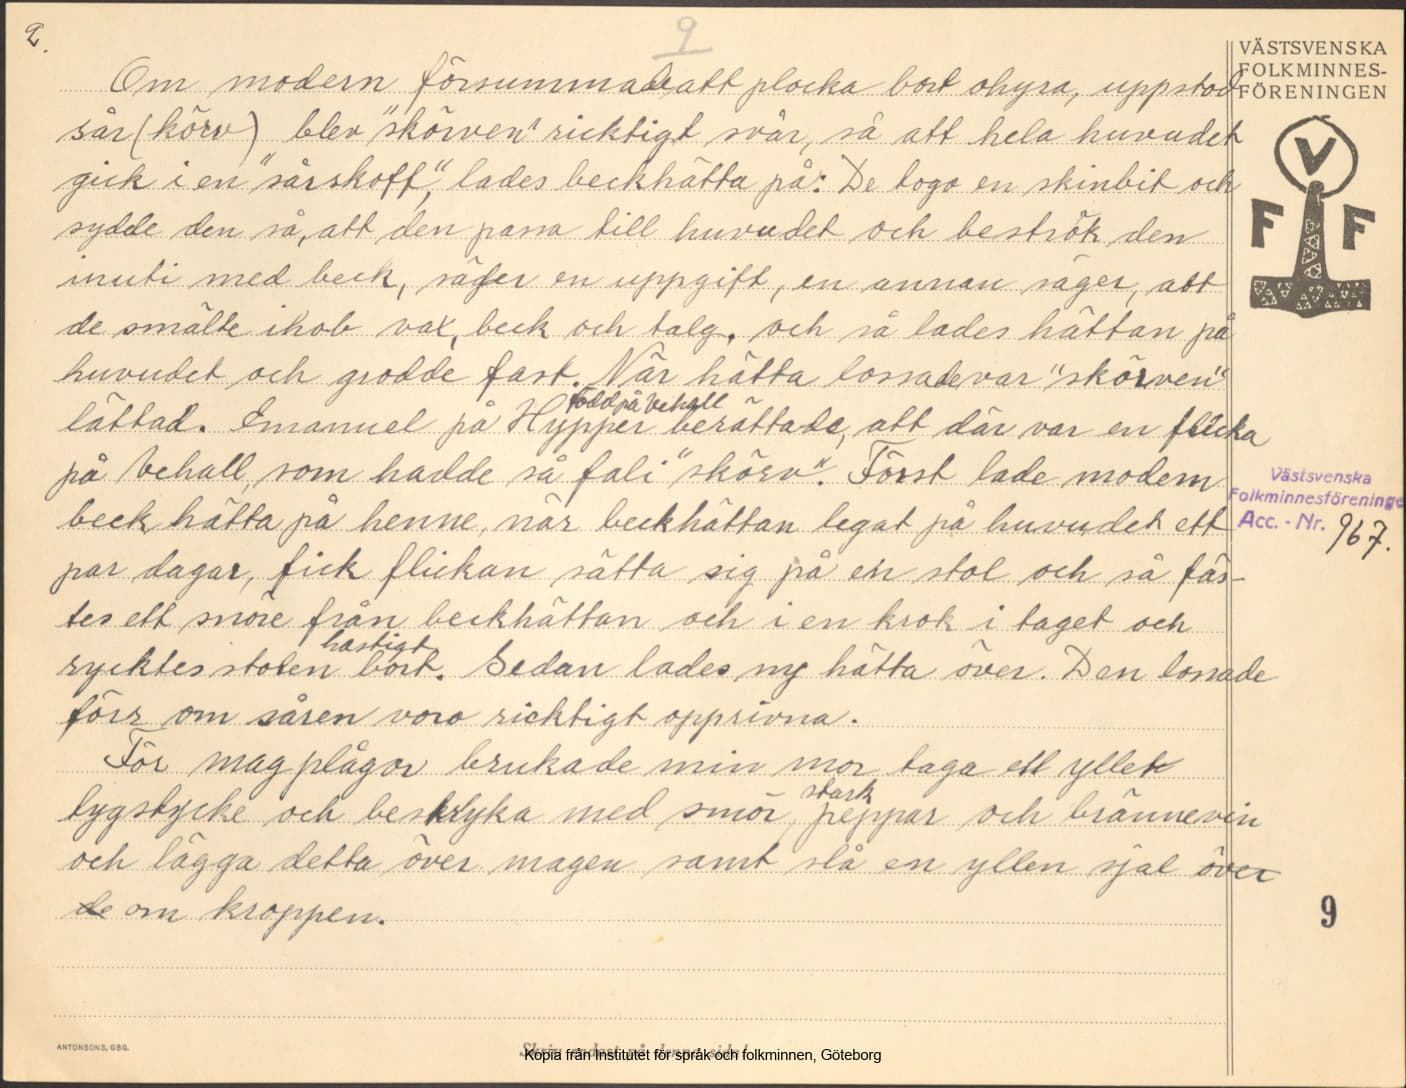 2.
9
VÄSTSVENSKA
FOLKMINNES-
FÖRENINGEN
V
F F
Om modern försummade att plocka bort ohyra, uppstod
sår (körv) blev "skörven" ricktigt svår, så att hela huvudet
gick i en "sårskoff", lades beckhätta på: De togo en skinbit och
sydde den så, att den passa till huvudet och beströk den
inuti med beck, säger en uppgift, en annan säger, att
de smälte ihob vax, beck och talg. och så lades hättan på
huvudet och grodde fast. När hätta lossade var "skörven"
född på Vehall
lättad. Emanuel på Hypper berättade, att där var en flicka
på Vehall, som hadde så fali "skörv". Först lade modern
beck hätta på henne, när beckhättan legat på huvudet ett
par dagar, fick flickan sätta sig på en stol och så fäs-
tes ett snöre från beckhättan och i en krok i taget och
hastigt
rycktes stolen bort. Sedan lades ny hätta över. Den lossade
förr om såren voro ricktigt opprivna.
För magplågor brukade min mor taga ett yllet
stark
tygstycke och bestryka med smör, peppar och brännevin
och lägga detta över magen samt slå en yllen sjal över
de om kroppen.
Västsvenska
Folkminnesföreninge
Acc. - Nr. 967.
9
ANTONSONS, GBG.
Skriv endast på denna sida!
Kopia från Institutet för språk och folkminnen, Göteborg